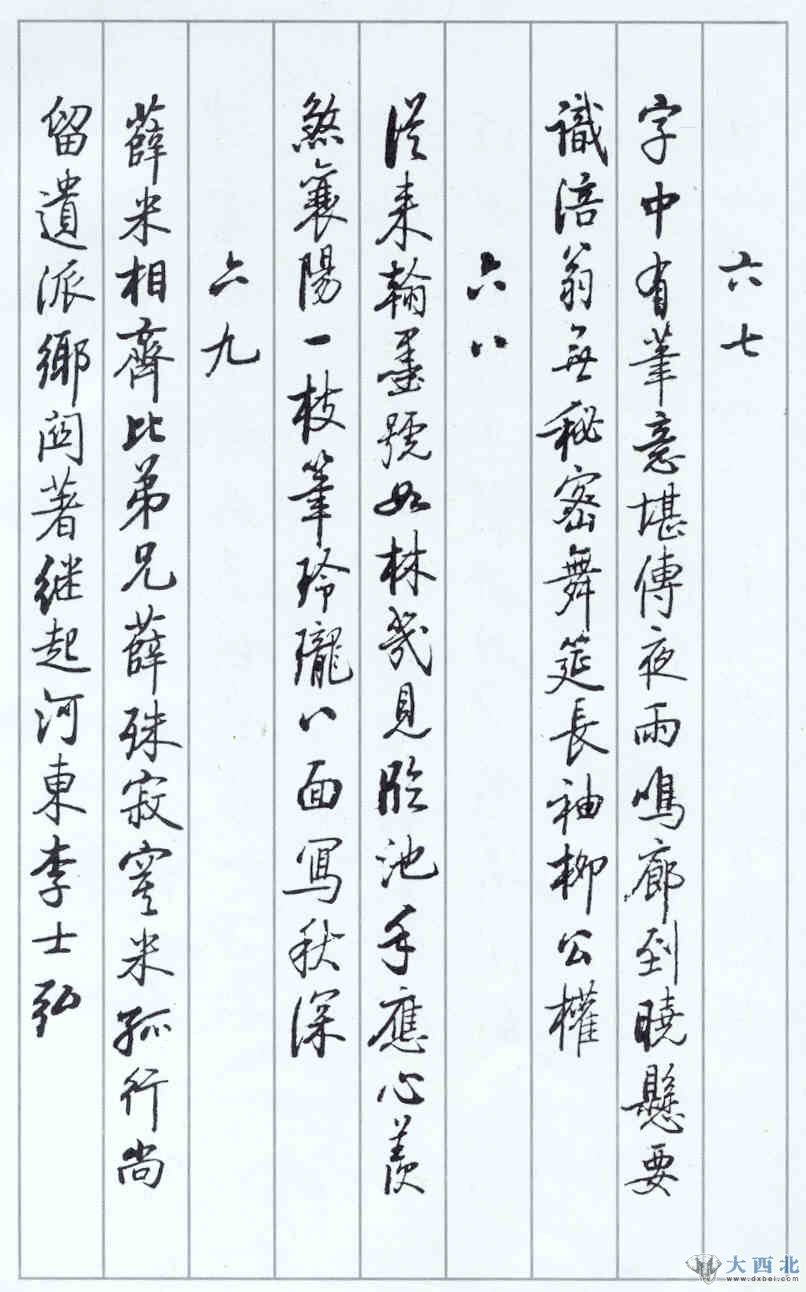 六七
字中有筆意堪傳夜雨鳴廊到曉懸要
識涪翁無秘密舞筵長袖柳公權
六八
從来翰墨號如林幾見臨池手應心羨
煞襄陽一枝筆玲瓏八面寫秋深
六九
薛米相齊比弟兄薛殊寂寞米孤行尚
留遺派鄉閭著继起河東李士弘
大西北
www.dxbei.com